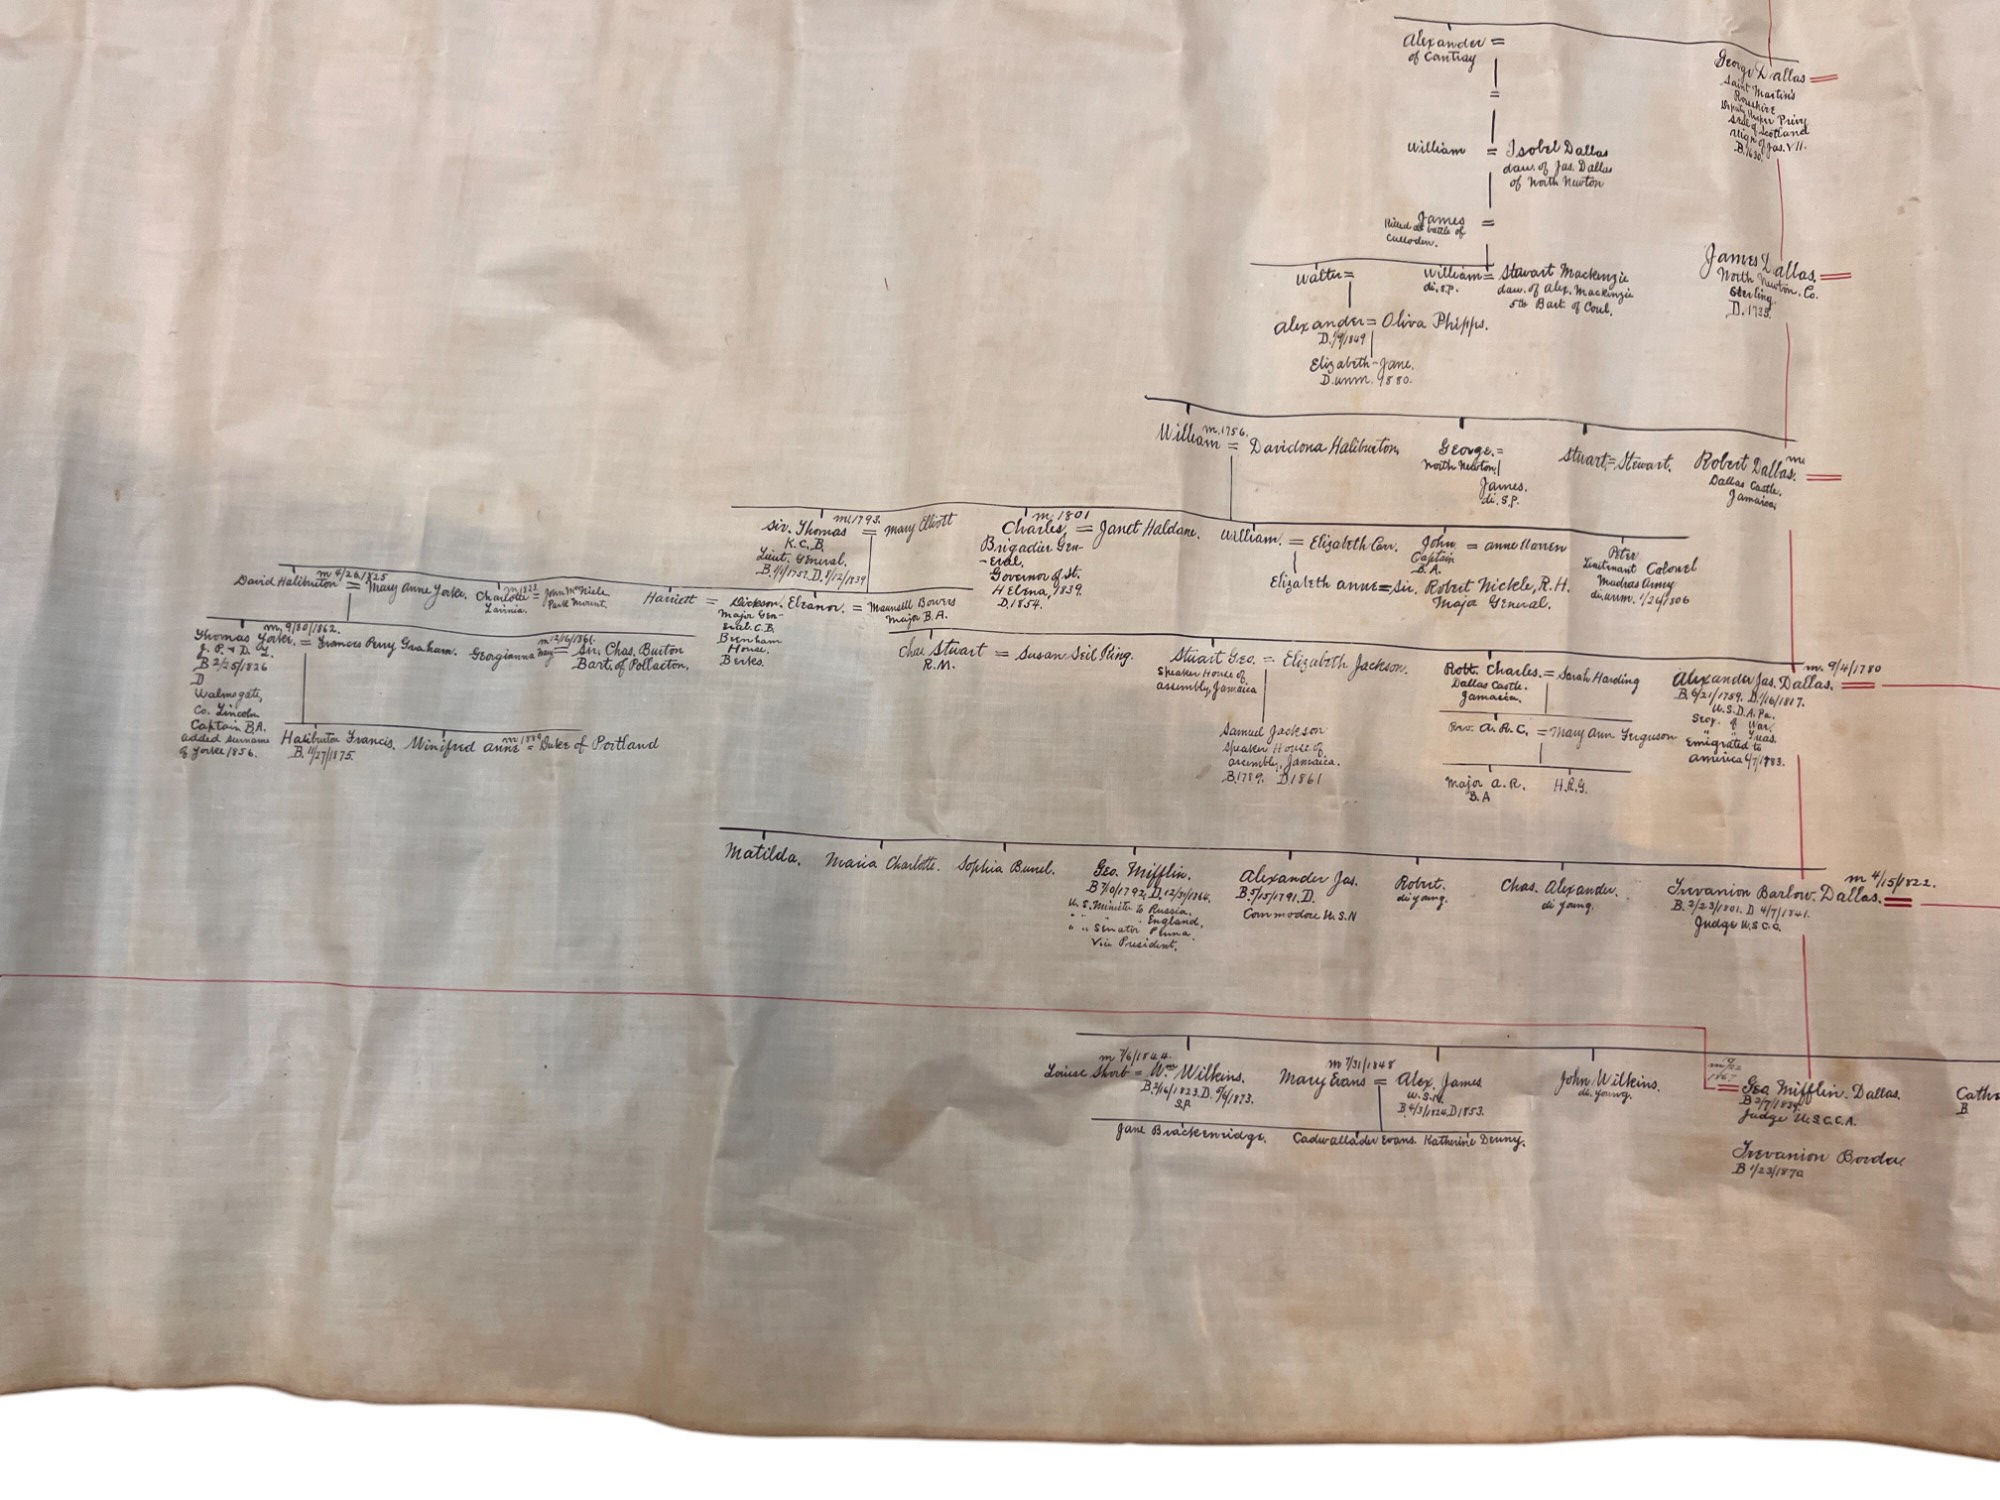 Alexander =
of Cantray
=
William = Isobel Dallas
daw. of Jas. Dallas
of North Newton
James =
Killed at battle of
Culloden.
George Dallas =
Saint Martin's
Rosshire
Deputy Keeper Privy
Seal of Scotland
Reign of Jas. VII.
B. 1630.
Walter =
William = Stewart Mackenzie
di. S.P.
daw. of Alex. Mackenzie
5th Bart of Coul.
James Dallas =
North Newton. Co.
Sterling.
Alexander = Oliva Phipps.
Elizabeth-Jane.
D. unm. 1880.
m. 1756.
William = Davidona Haliburton,
George. =
North Newton
James.
di. S.P.
Stuart = Stewart.
m
Robert Dallas. =
Dallas Castle.
Jamaica,
m. 1793.
Sir. Thomas = Mary Elliott
K. C. B.
Lieut. General.
m. 1801
Charles, = Janet Haldane.
Brigadier Gen-
-eral,
Governor of St.
Helena, 1839.
D. 1854.
William. = Elizabeth Carr.
Elizabeth Anne = Sir. Robert Nickle, R.H.
Maja General.
John = Anne Warren
Captain
B. A.
Peter
Lieutenant Colonel
Madras Army
di. unm. 1/24/1806
m 4/26/1825
David Haliburton = Mary Anne Yorke.
m. 1822
Charlotte = John McNiele
Lavinia. Park Mount.
Harriett = Dickson.
Major Gen-
eral. C.B.
Brenham
House.
Berks.
Eleanor. = Maunsell Bowers
Major B.A.
m. 9/30/1862.
Thomas Yorke. = Frances Perry Graham.
J. P. & D. L.
B 2/25/1826
D
Walmsgate,
Co. Lincoln
Captain B.A.
added surname
of Yorke 1856.
m 12/16/1861.
Georgianna May = Sir. Chas. Burton
Bart. of Pollacton,
Haliburton Francis,
B. 11/27/1875.
m 1889
Winifred Anne = Duke of Portland
Chas Stuart = Susan Seil Ring.
R. M.
Stuart Geo. = Elizabeth Jackson.
Speaker House of
assembly, Jamaica
Samuel Jackson
Speaker House of
assembly, Jamaica.
B. 1789. D 1861
Robt. Charles. = Sarah Harding
Dallas Castle.
Jamaica,
Rev. A. R. C. = Mary Ann Ferguson
Major A. R.
B. A
H. R. G.
m. 9/4/1780
Alexander Jas. Dallas. =
B 6/21/1759. D. 1/16/1817.
U. S. D. A. Pa.
Secy. of War.
" " Treas.
Emigrated to
America 6/7/1783.
Matilda.
Maria Charlotte.
Sophia Burrel.
Geo. Mifflin.
B 7/10/1792, D. 12/31/1864.
U. S. Minister to Russia.
" " " England,
" " Senator Penna.
Vice President.
Alexander Jas.
B. 5/15/1791. D.
Commodore U. S. N
Robert.
di young.
Chas. Alexander.
di young.
m 4/15/1822.
Trevanion Barlow. Dallas. =
B. 2/23/1801. D 4/7/1841.
Judge U.S C.C.
m 7/6/1844
Louise Shorb = Wm Wilkins.
S.P
m 7/31/1848
Mary Evans = Alex. James
U. S. N.
B. 4/3/1824 D 1853.
John Wilkins.
di. young.
Geo. Mifflin. Dallas.
Judge U.S.C.C.A.
Catha
B.
Jane Brackenridge.
Cadwallader Evans.
Katherine Denny.
Trevanion Borda
B 1/23/1870